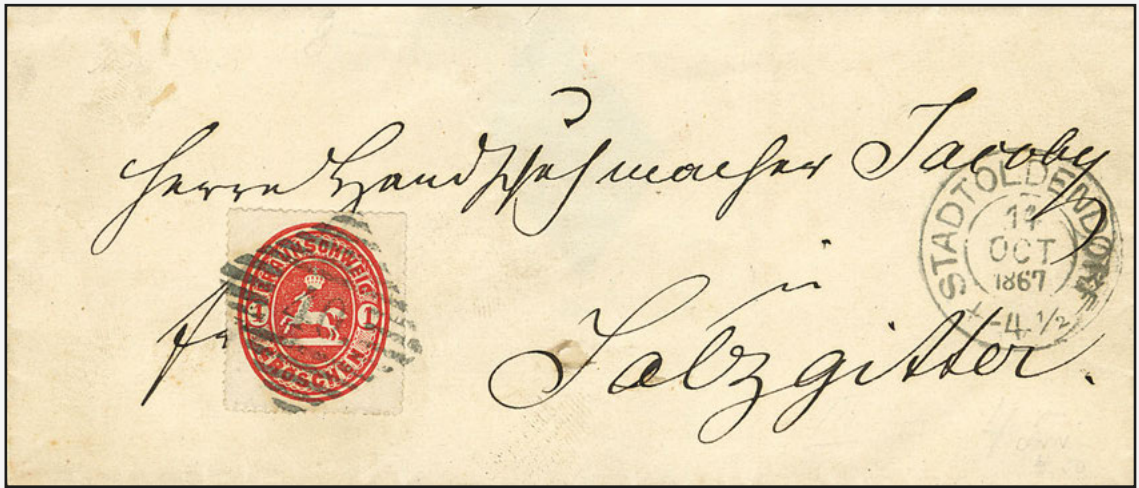 Herrn Handschuhmacher Jacoby
in
Salzgitter.
fr
BRAUNSCHWEIG
1 1
GROSCHEN
STADTOLDENDORF
14
OCT
1867
+ -4 ½